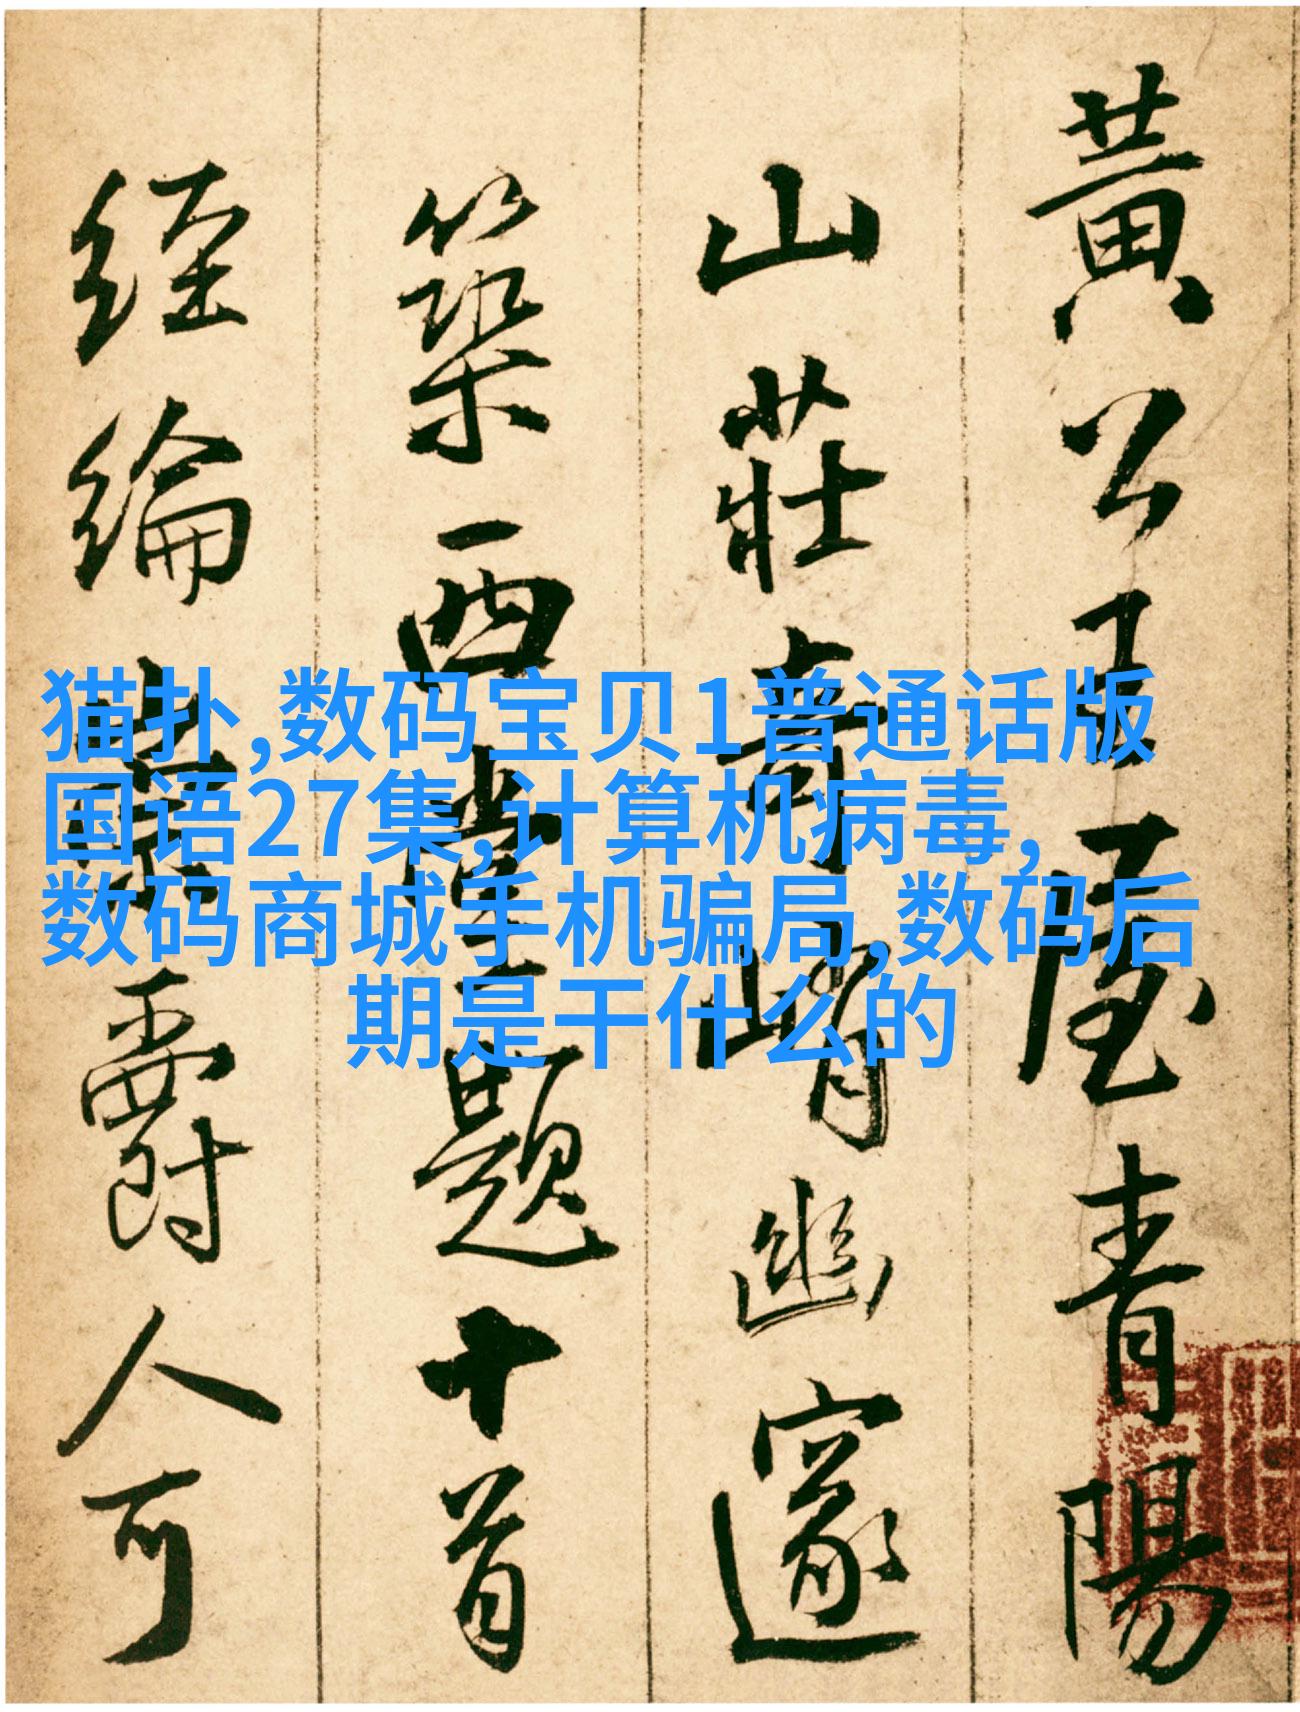 猫扑,数码宝贝1普通话版
国语27集,计算机病毒,
数码商城手机骗局,数码后
期是干什么的
黃公王屋青陽
山莊奇峭幽邃
築西堂題十首
經綸爵人可